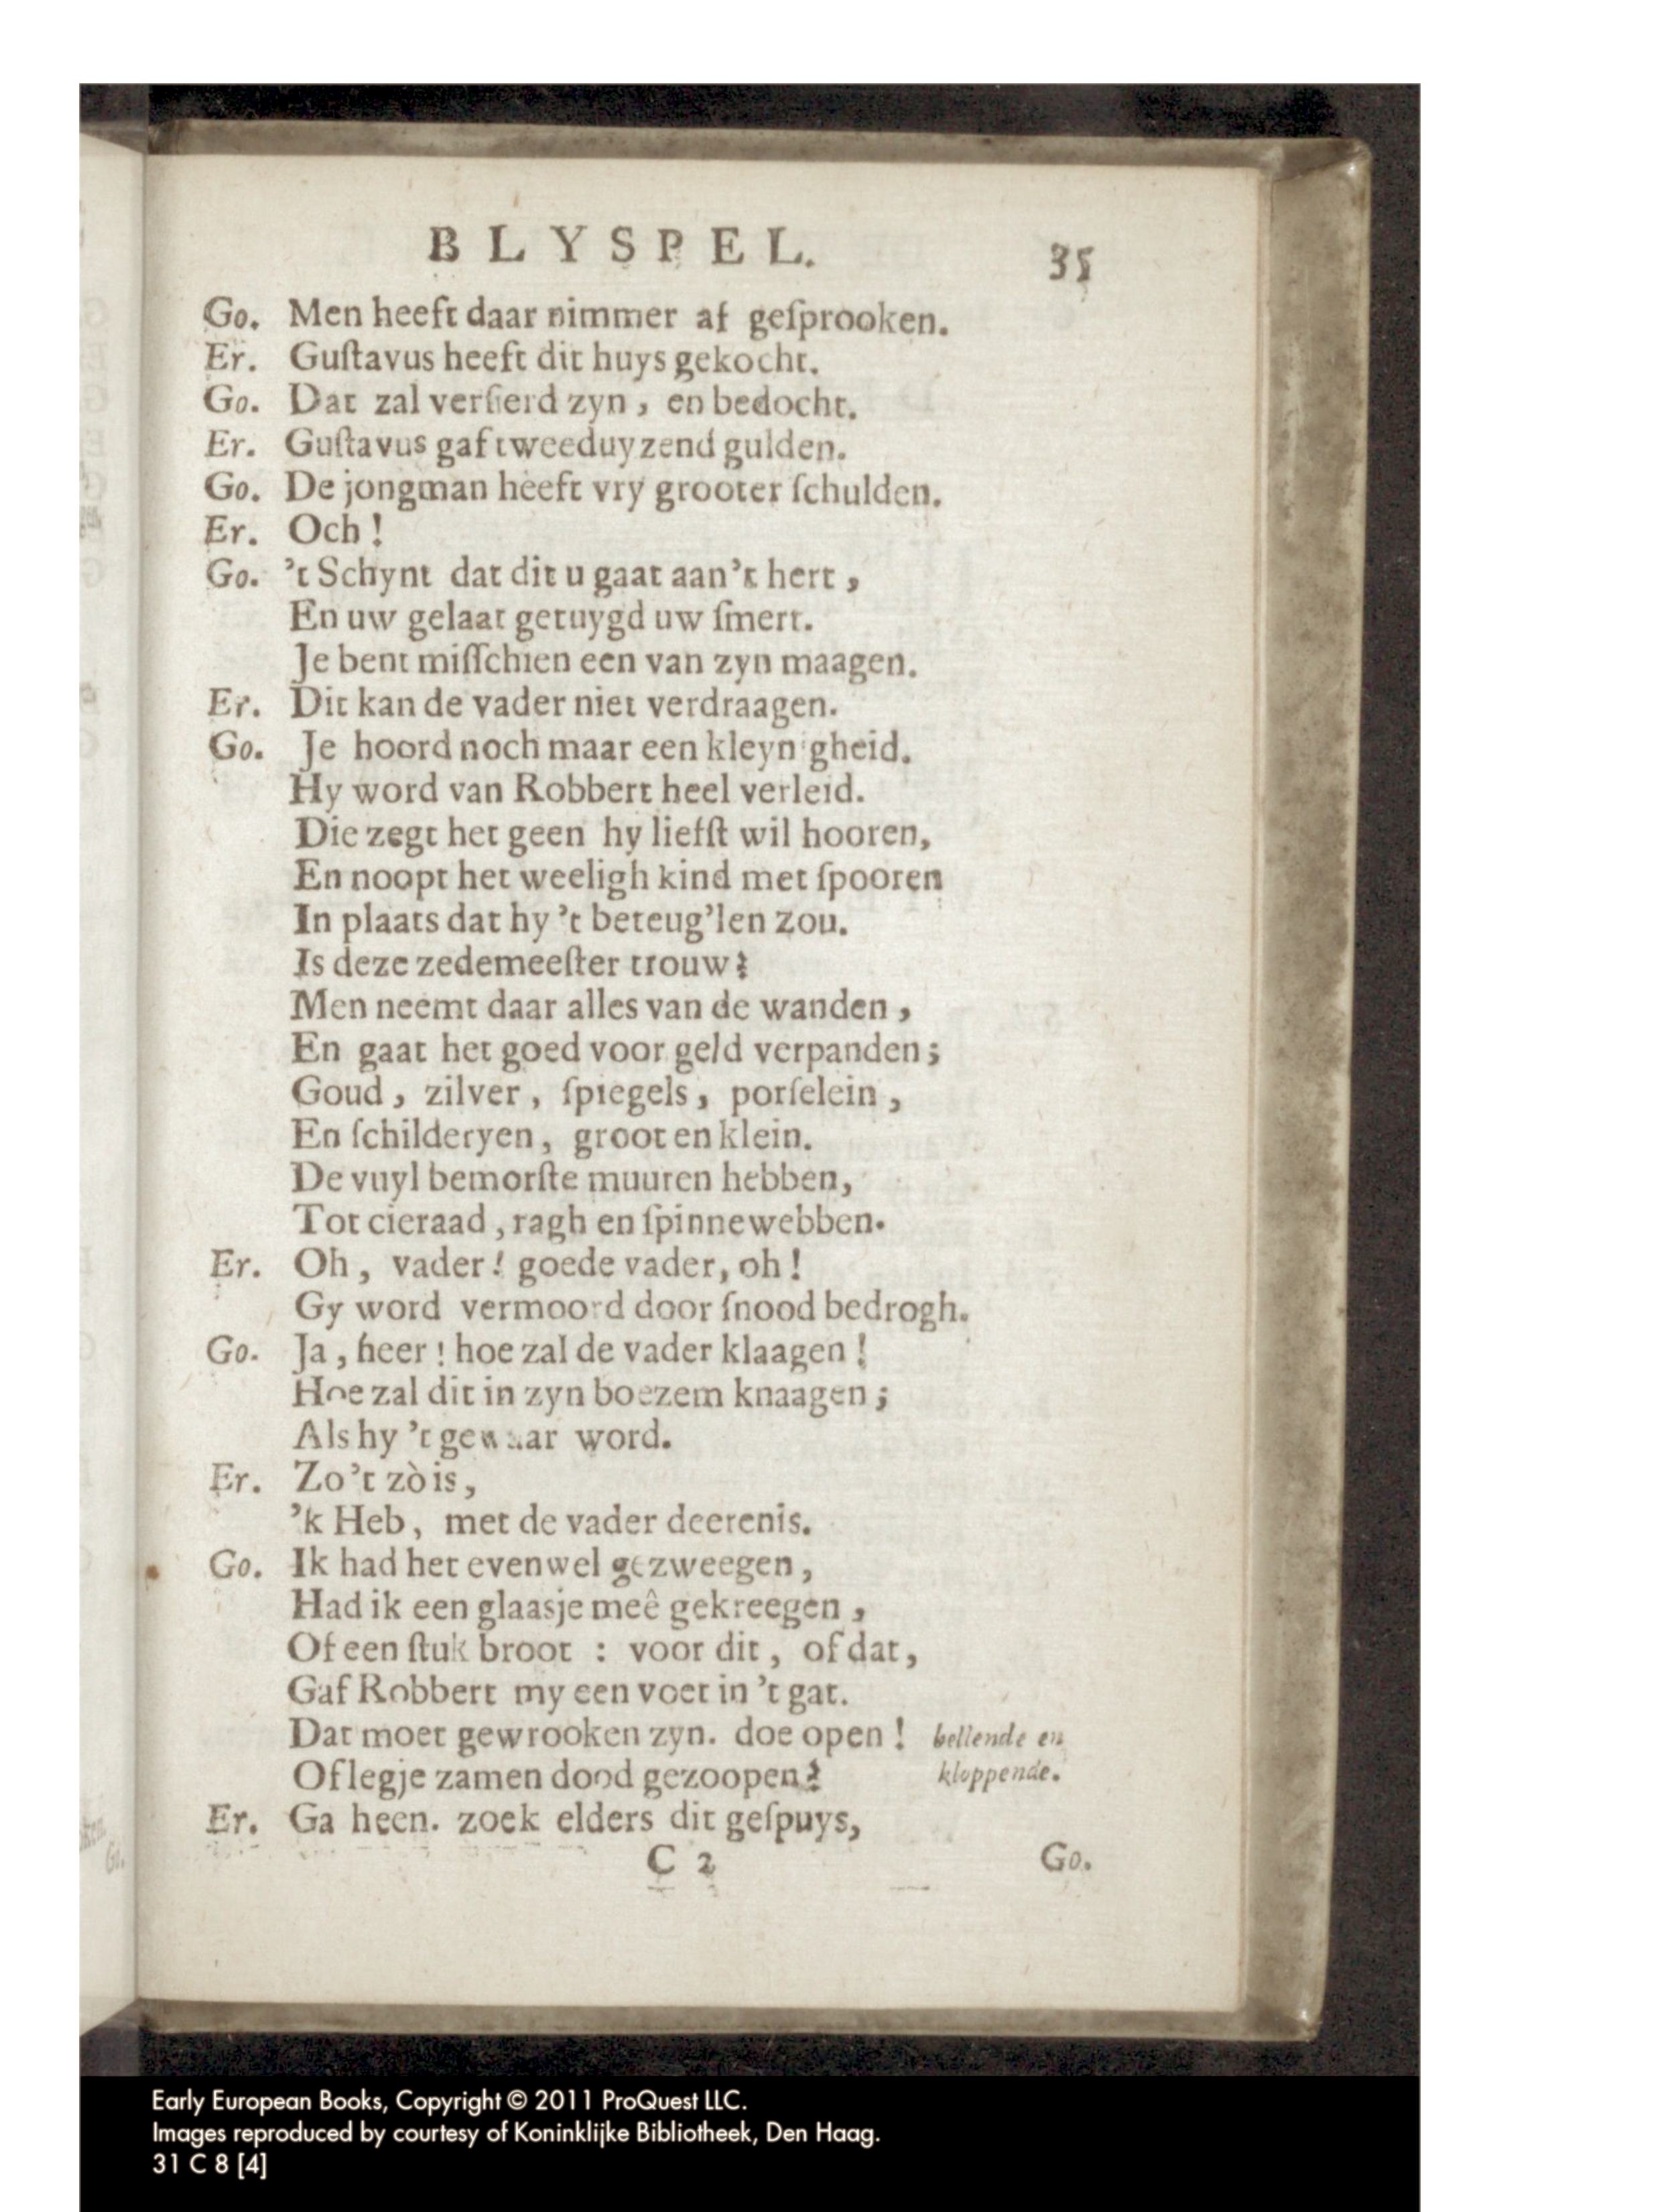 BLYSPEL. 35
Go. Men heeft daar nimmer af geſprooken.
Er. Guſtavus heeft dit huys gekocht.
Go. Dat zal verſierd zyn, en bedocht.
Er. Guſtavus gaf tweeduyzend gulden.
Go. De jongman heeft vry grooter ſchulden.
Er. Och!
Go. 't Schynt dat dit u gaat aan't hert,
En uw gelaat getuygd uw ſmert.
Je bent miſſchien een van zyn maagen.
Er. Dit kan de vader niet verdraagen.
Go. Je hoord noch maar een kleynigheid.
Hy word van Robbert heel verleid.
Die zegt het geen hy liefſt wil hooren,
En noopt het weeligh kind met ſpooren
In plaats dat hy 't beteug'len zou.
Is deze zedemeeſter trouw?
Men neemt daar alles van de wanden,
En gaat het goed voor geld verpanden;
Goud, zilver, ſpiegels, porſelein,
En ſchilderyen, groot en klein.
De vuyl bemorſte muuren hebben,
Tot cieraad, ragh en ſpinnewebben.
Er. Oh, vader! goede vader, oh!
Gy word vermoord door ſnood bedrogh.
Go. Ja, heer! hoe zal de vader klaagen!
Hoe zal dit in zyn boezem knaagen;
Als hy 't gewaar word.
Er. Zo't zò is,
'k Heb, met de vader deerenis.
Go. Ik had het evenwel gezweegen,
Had ik een glaasje meê gekreegen,
Of een ſtuk broot : voor dit, of dat,
Gaf Robbert my een voet in 't gat.
Dat moet gewrooken zyn. doe open! bellende en
Of legje zamen dood gezoopen? kloppende.
Er. Ga heen. zoek elders dit geſpuys,
C 2 Go.
Early European Books, Copyright © 2011 ProQuest LLC.
Images reproduced by courtesy of Koninklijke Bibliotheek, Den Haag.
31 C 8 [4]